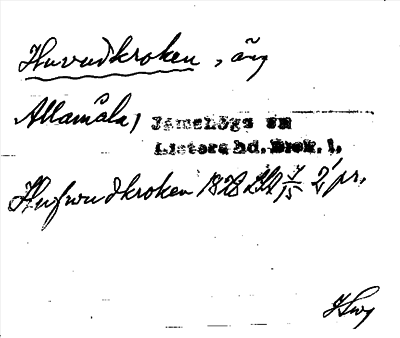 Huvudkroken, äng
Allamåla,
Jämshögs sn
Listers hd. Blek. l.
Hufvudkroken 1828 7/15 2 pr.